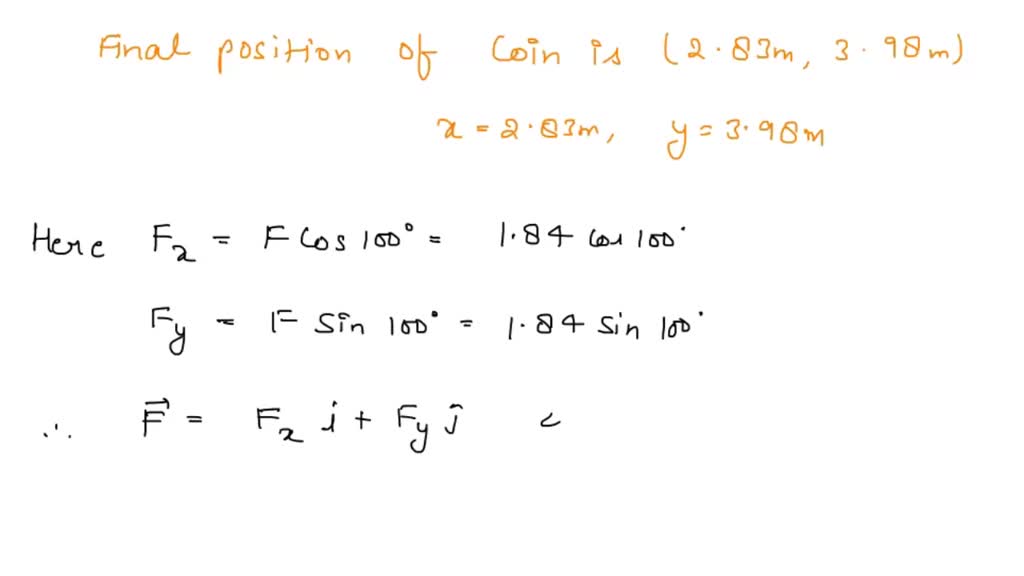 Final position of Coin is (2.83m, 3.98m)
x = 2.83m, y = 3.98m
Here Fx = F Cos 100° = 1.84 cos 100°
Fy = F Sin 100° = 1.84 Sin 100°
∴ F⃗ = Fx i + Fy ĵ